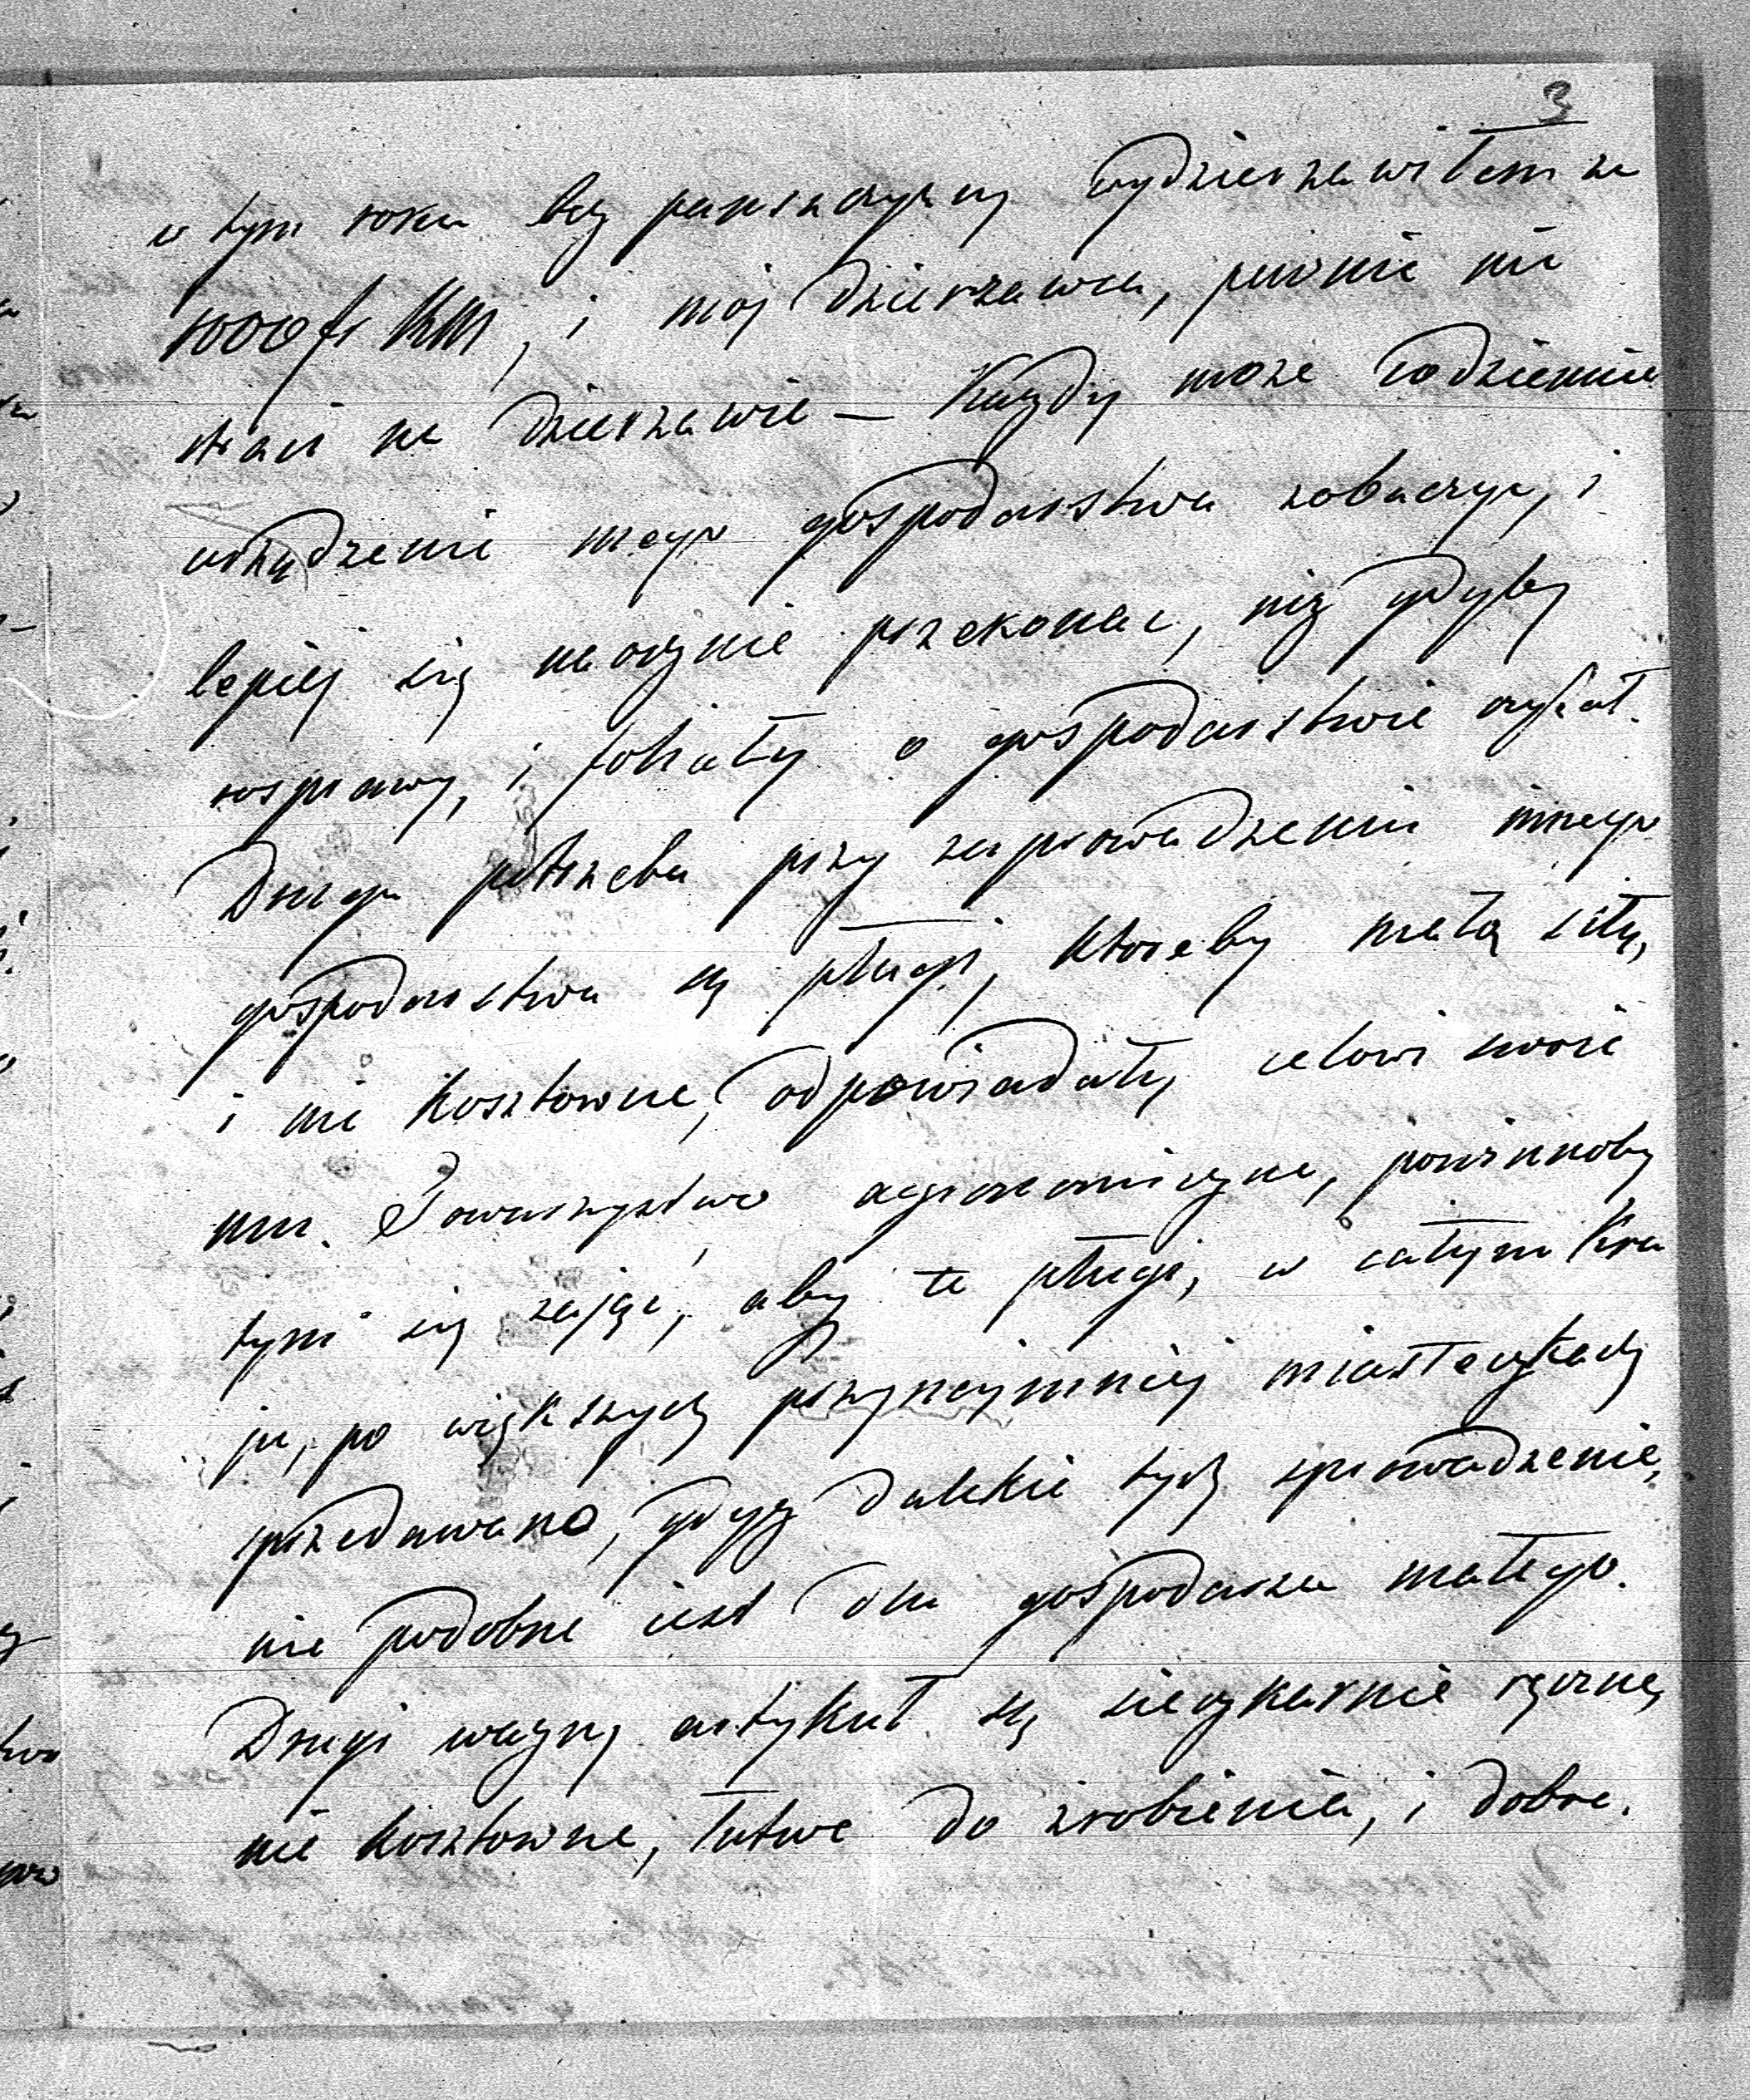 3
w tym roku bez pańszczyzny wydzierzawiłem za
1000 fr KM, i moj dzierzawca, pewnie nie
straci na dzierzawie — Kazdy moze codziennie
urządzenie mego gospodarstwa zobaczyc, i
lepiej się naocznie przekonac, niz gdyby
rosprawy, i foliały o gospodarstwie czytał.
Druga potrzeba przy zaprowadzeniu innego
gospodarstwa są pługi, ktoreby małą siłą,
i nie kosztowne, odpowiadały celowi swoie
mu. Towarzystwo agronomiczne, powinnoby
tym się zająć, aby te pługi, w całym kra
ju, po większych przynajmniej miasteczkach
przedawano, gdyz dalekie tych sprowadzenie,
nie podobne iest dla gospodarza małego.
Drugi wazny artykuł są sieczkarnie ręczne,
nie kosztowne, łatwe do zrobienia, i dobre.